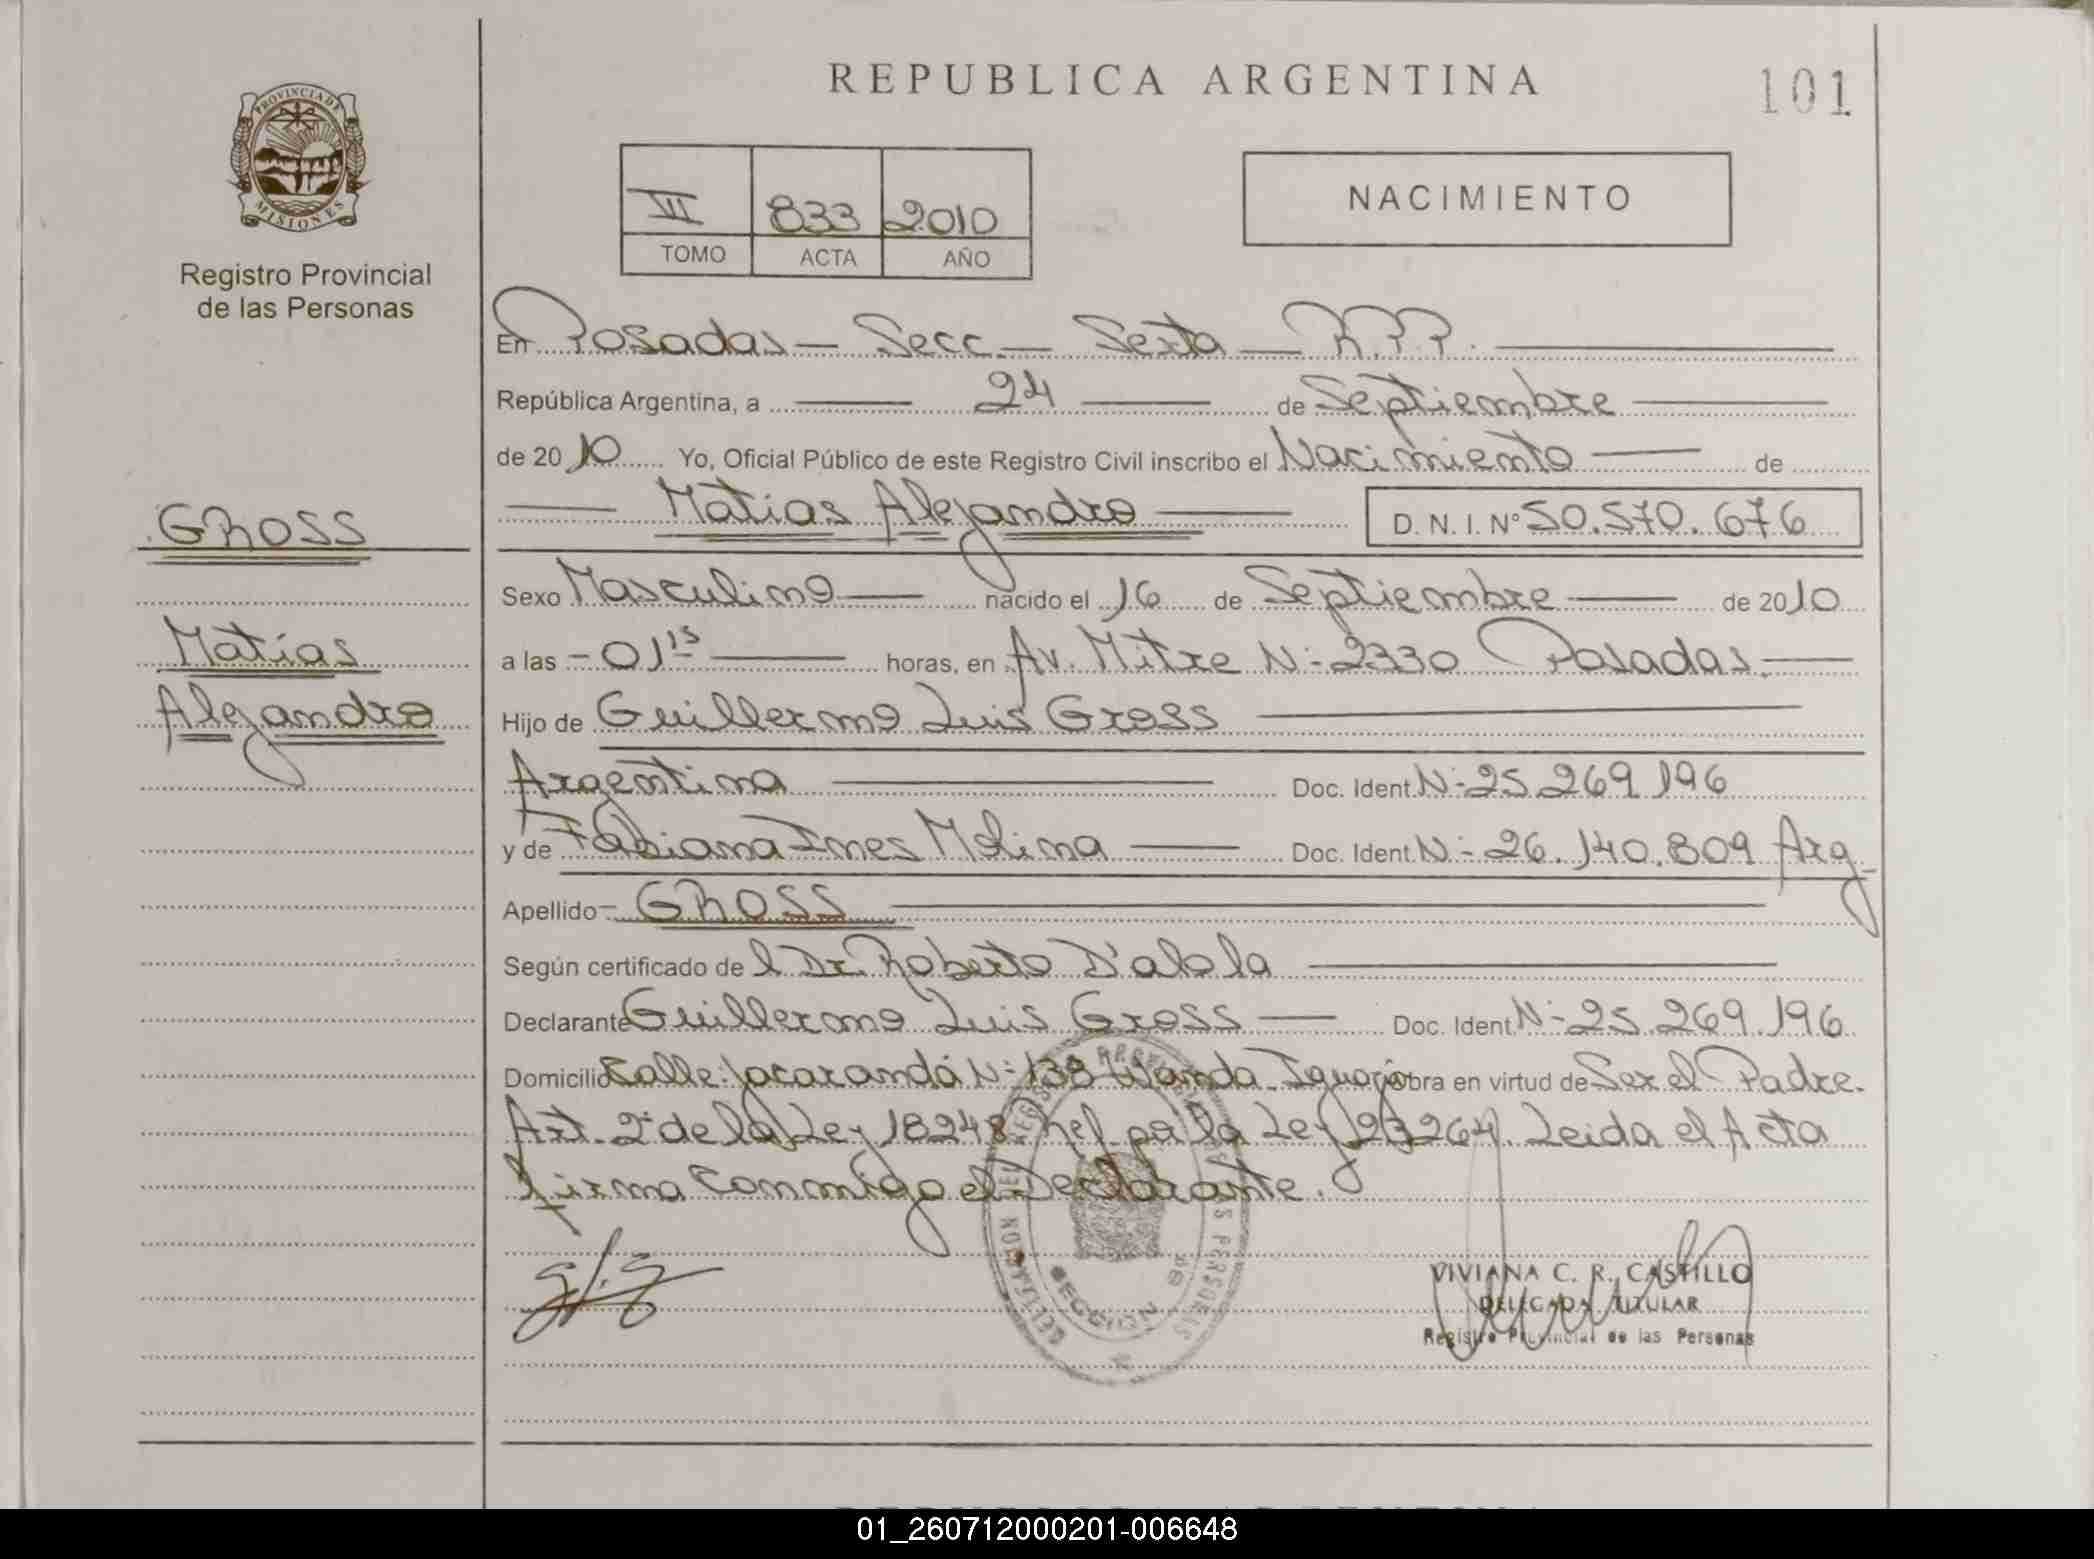 REPUBLICA ARGENTINA
101
PROVINCIA DE
MISIONES
Registro Provincial
de las Personas
VII 833 2010
TOMO ACTA AÑO
NACIMIENTO
En Posadas - Secc. - Sexta - R.P.P.
República Argentina, a 24 de Septiembre
de 2010 Yo, Oficial Público de este Registro Civil inscribo el Nacimiento de
Matias Alejandro D. N. I. N° 50.570.676
GROSS
Matías
Alejandro
Sexo Masculino nacido el 16 de Septiembre de 2010
a las - 01 15 horas, en Av. Mitre N: 2330 Posadas.
Hijo de Guillermo Luis Gross
Argentina Doc. Ident. N: 25.269.196
y de Fabiana Ines Molina Doc. Ident. N: 26.140.809 Arg
Apellido GROSS
Según certificado de l Dr. Roberto D'alola
Declarante Guillermo Luis Gross Doc. Ident N: 25.269.196
Domicilio Calle: Jacarandá N: 138 Wanda - Iguazú obra en virtud de Ser el Padre.
Art. 2° de la Ley 18248. Ref. por la Ley 23264. Leida el Acta
firma conmigo el Declarante.
SECCION
VIVIANA C. R. CASTILLO
DELEGADA TITULAR
Registro Provincial de las Personas
01_260712000201-006648